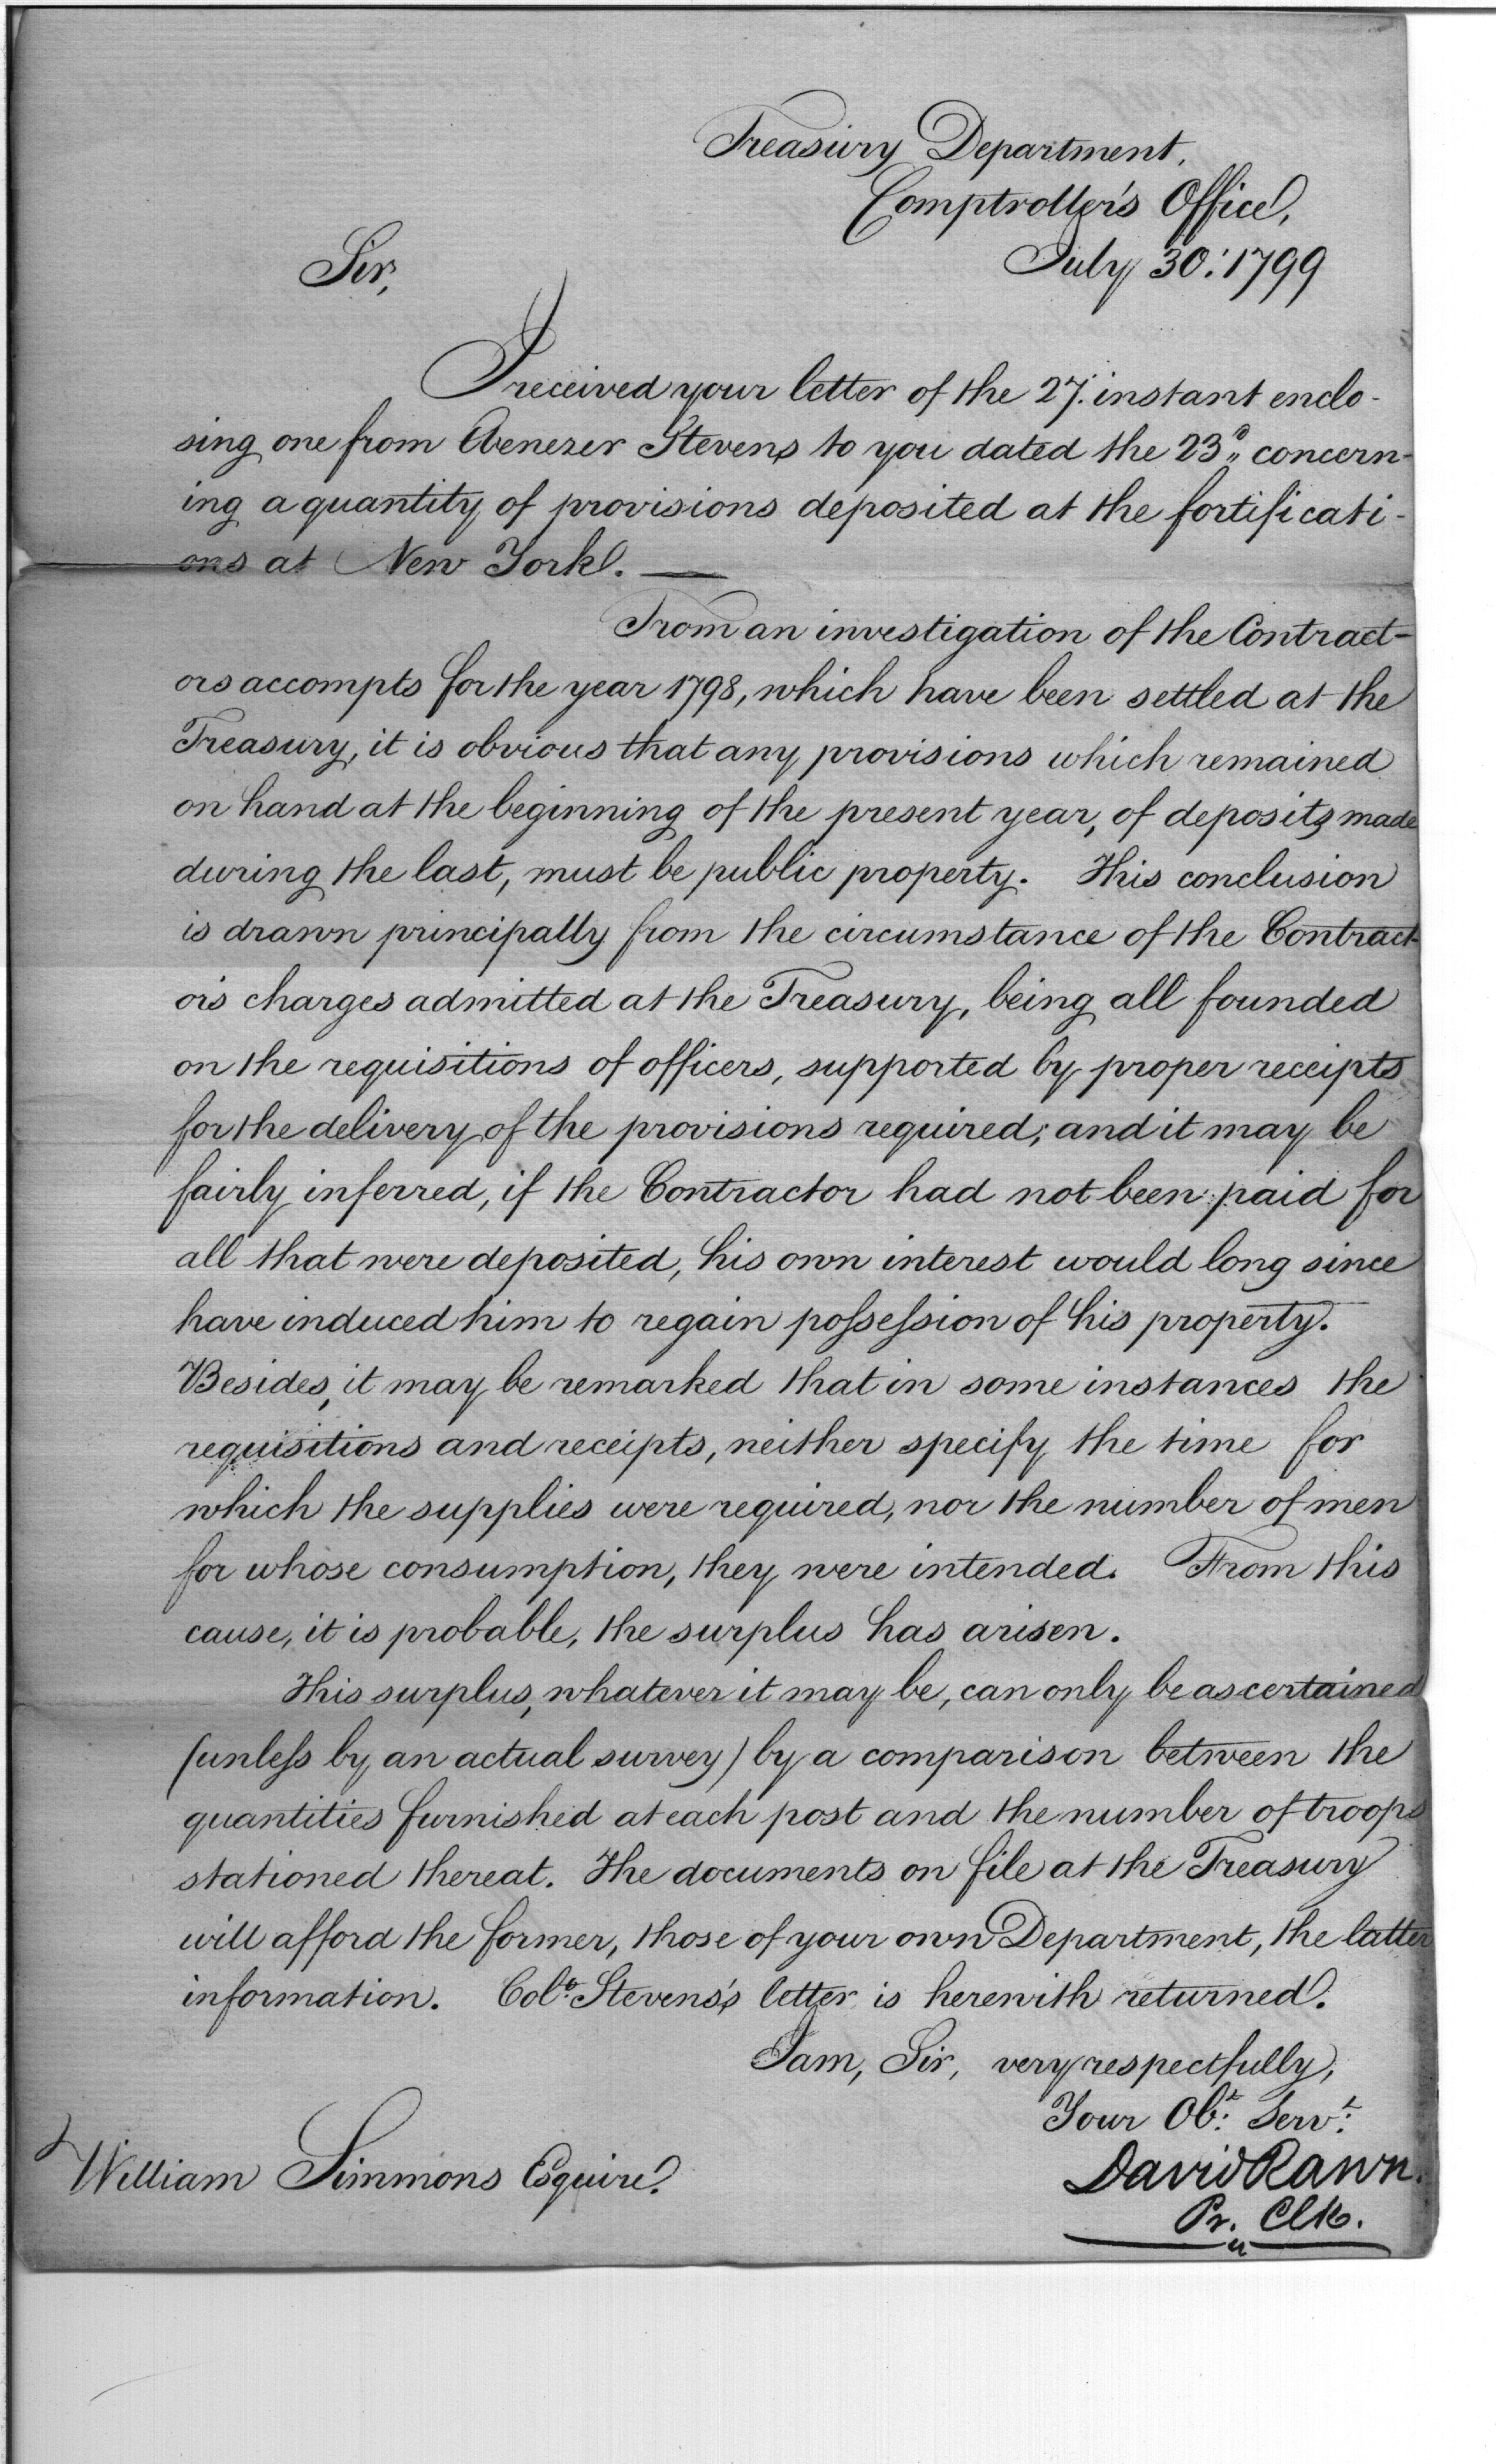 Treasury Department,
Comptroller's Office,
July 30: 1799
Sir,
I received your letter of the 27. instant enclo-
sing one from Ebenezer Stevens to you dated the 23d concern-
ing a quantity of provisions deposited at the fortificati-
ons at New York. —
From an investigation of the Contract-
ors accompts for the year 1798, which have been settled at the
Treasury, it is obvious that any provisions which remained
on hand at the beginning of the present year, of deposits made
during the last, must be public property. This conclusion
is drawn principally from the circumstance of the Contract-
or's charges admitted at the Treasury, being all founded
on the requisitions of officers, supported by proper receipts
for the delivery of the provisions required; and it may be
fairly inferred, if the Contractor had not been paid for
all that were deposited, his own interest would long since
have induced him to regain poſseſsion of his property.
Besides, it may be remarked that in some instances the
requisitions and receipts, neither specify the time for
which the supplies were required, nor the number of men
for whose consumption, they were intended. From this
cause, it is probable, the surplus has arisen.
This surplus, whatever it may be, can only be ascertained
(unleſs by an actual survey) by a comparison between the
quantities furnished at each post and the number of troops
stationed thereat. The documents on file at the Treasury
will afford the former, those of your own Department, the latter
information. Colo. Stevens's letter is herewith returned.
I am, Sir, very respectfully,
Your Obt: Servt:
David Rawn.
Pr. Clk.
William Simmons Esquire.